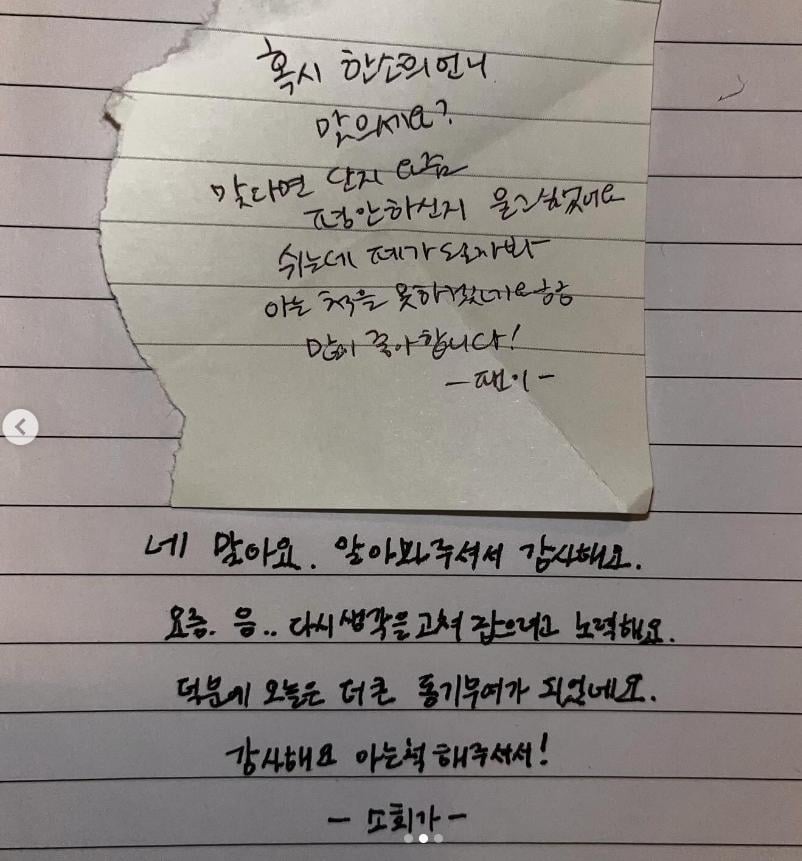 혹시 한소희언니
맞으세요?
맞다면 단지 요즘
평안하신지 묻고싶었어요
쉬는데 폐가 될까봐
아는 척을 못하겠네요
많이 좋아합니다!
- 팬이 -
네 맞아요. 알아봐주셔서 감사해요.
요즘. 음.. 다시 생각을 고쳐 잡으려고 노력해요.
덕분에 오늘은 더 큰 동기부여가 되었네요.
감사해요 아는척 해주셔서!
- 소희가 -